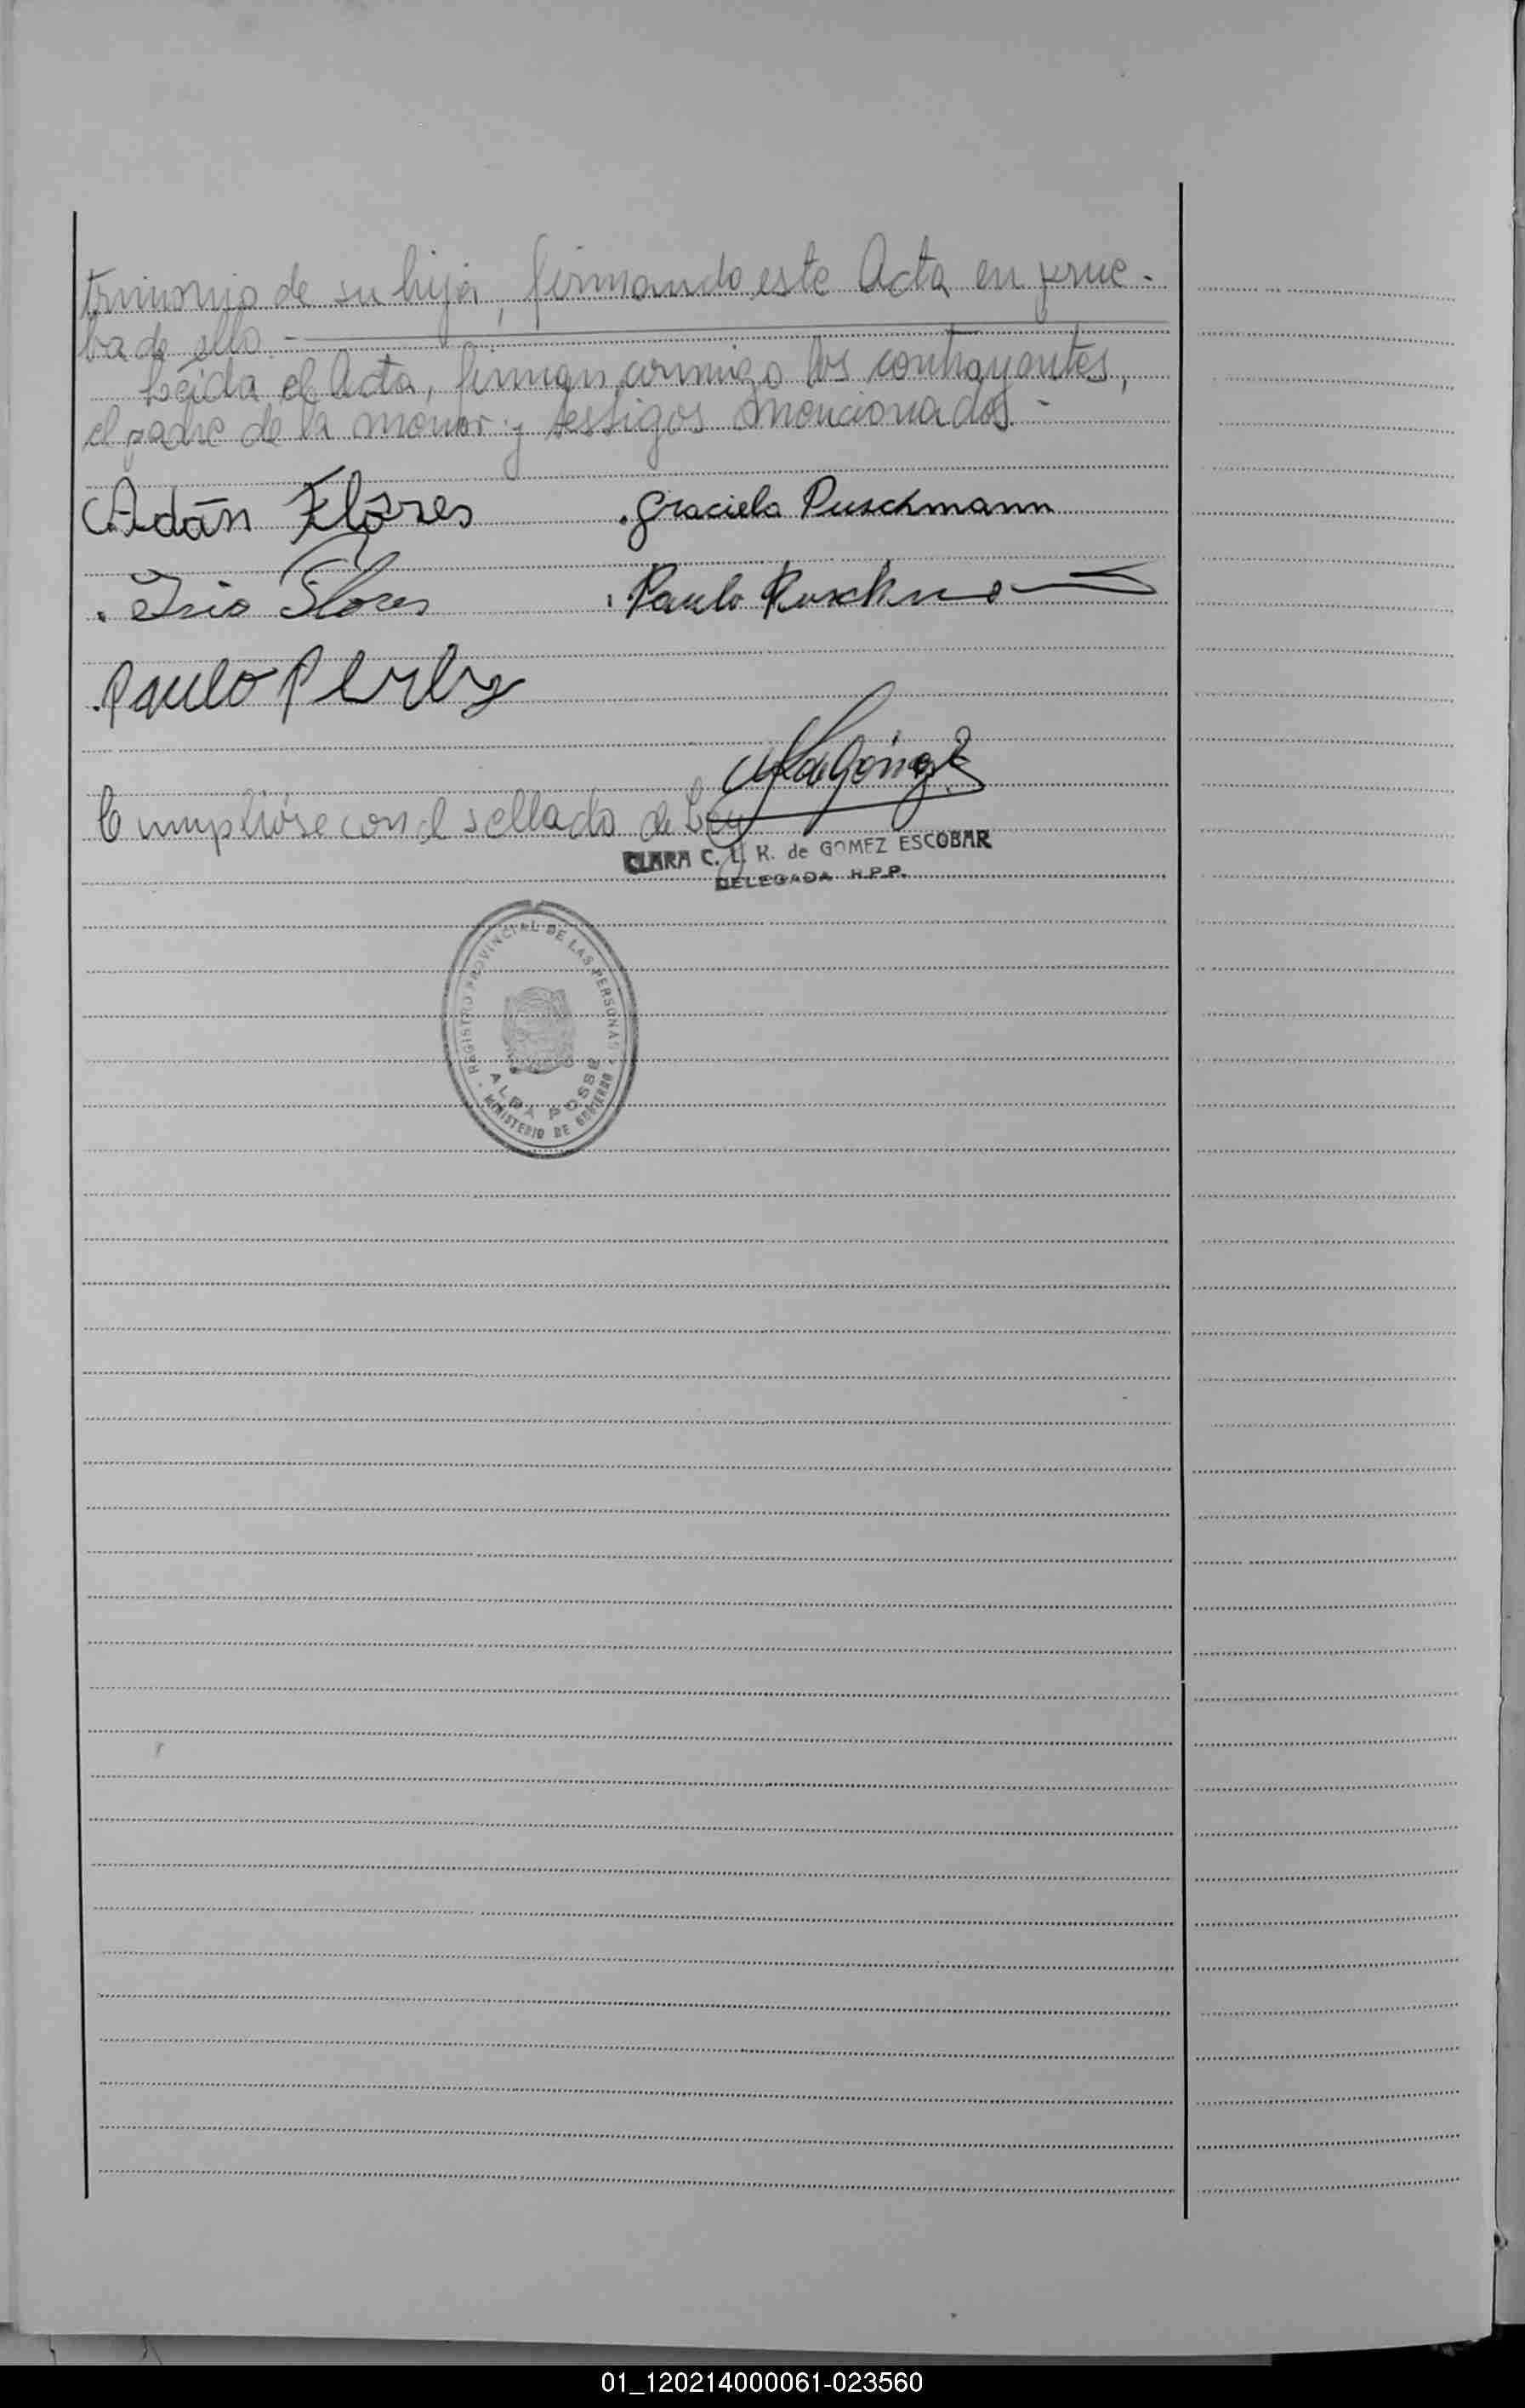 trimonio de su hija, firmando este Acta en prue-
ba de ello.-
Leída el Acta, firman conmigo los contrayentes,
el padre de la menor y testigos mencionados.-
Adán Flores
.Graciela Puschmann
. Flores
. Paulo
.Paulo
Cumplióse con el sellado de Ley
CLARA C. L. K. de GOMEZ ESCOBAR
DELEGADA R.P.P.
REGISTRO PROVINCIAL DE LAS PERSONAS
ALBA POSSE
MINISTERIO DE GOBIERNO
01_120214000061-023560